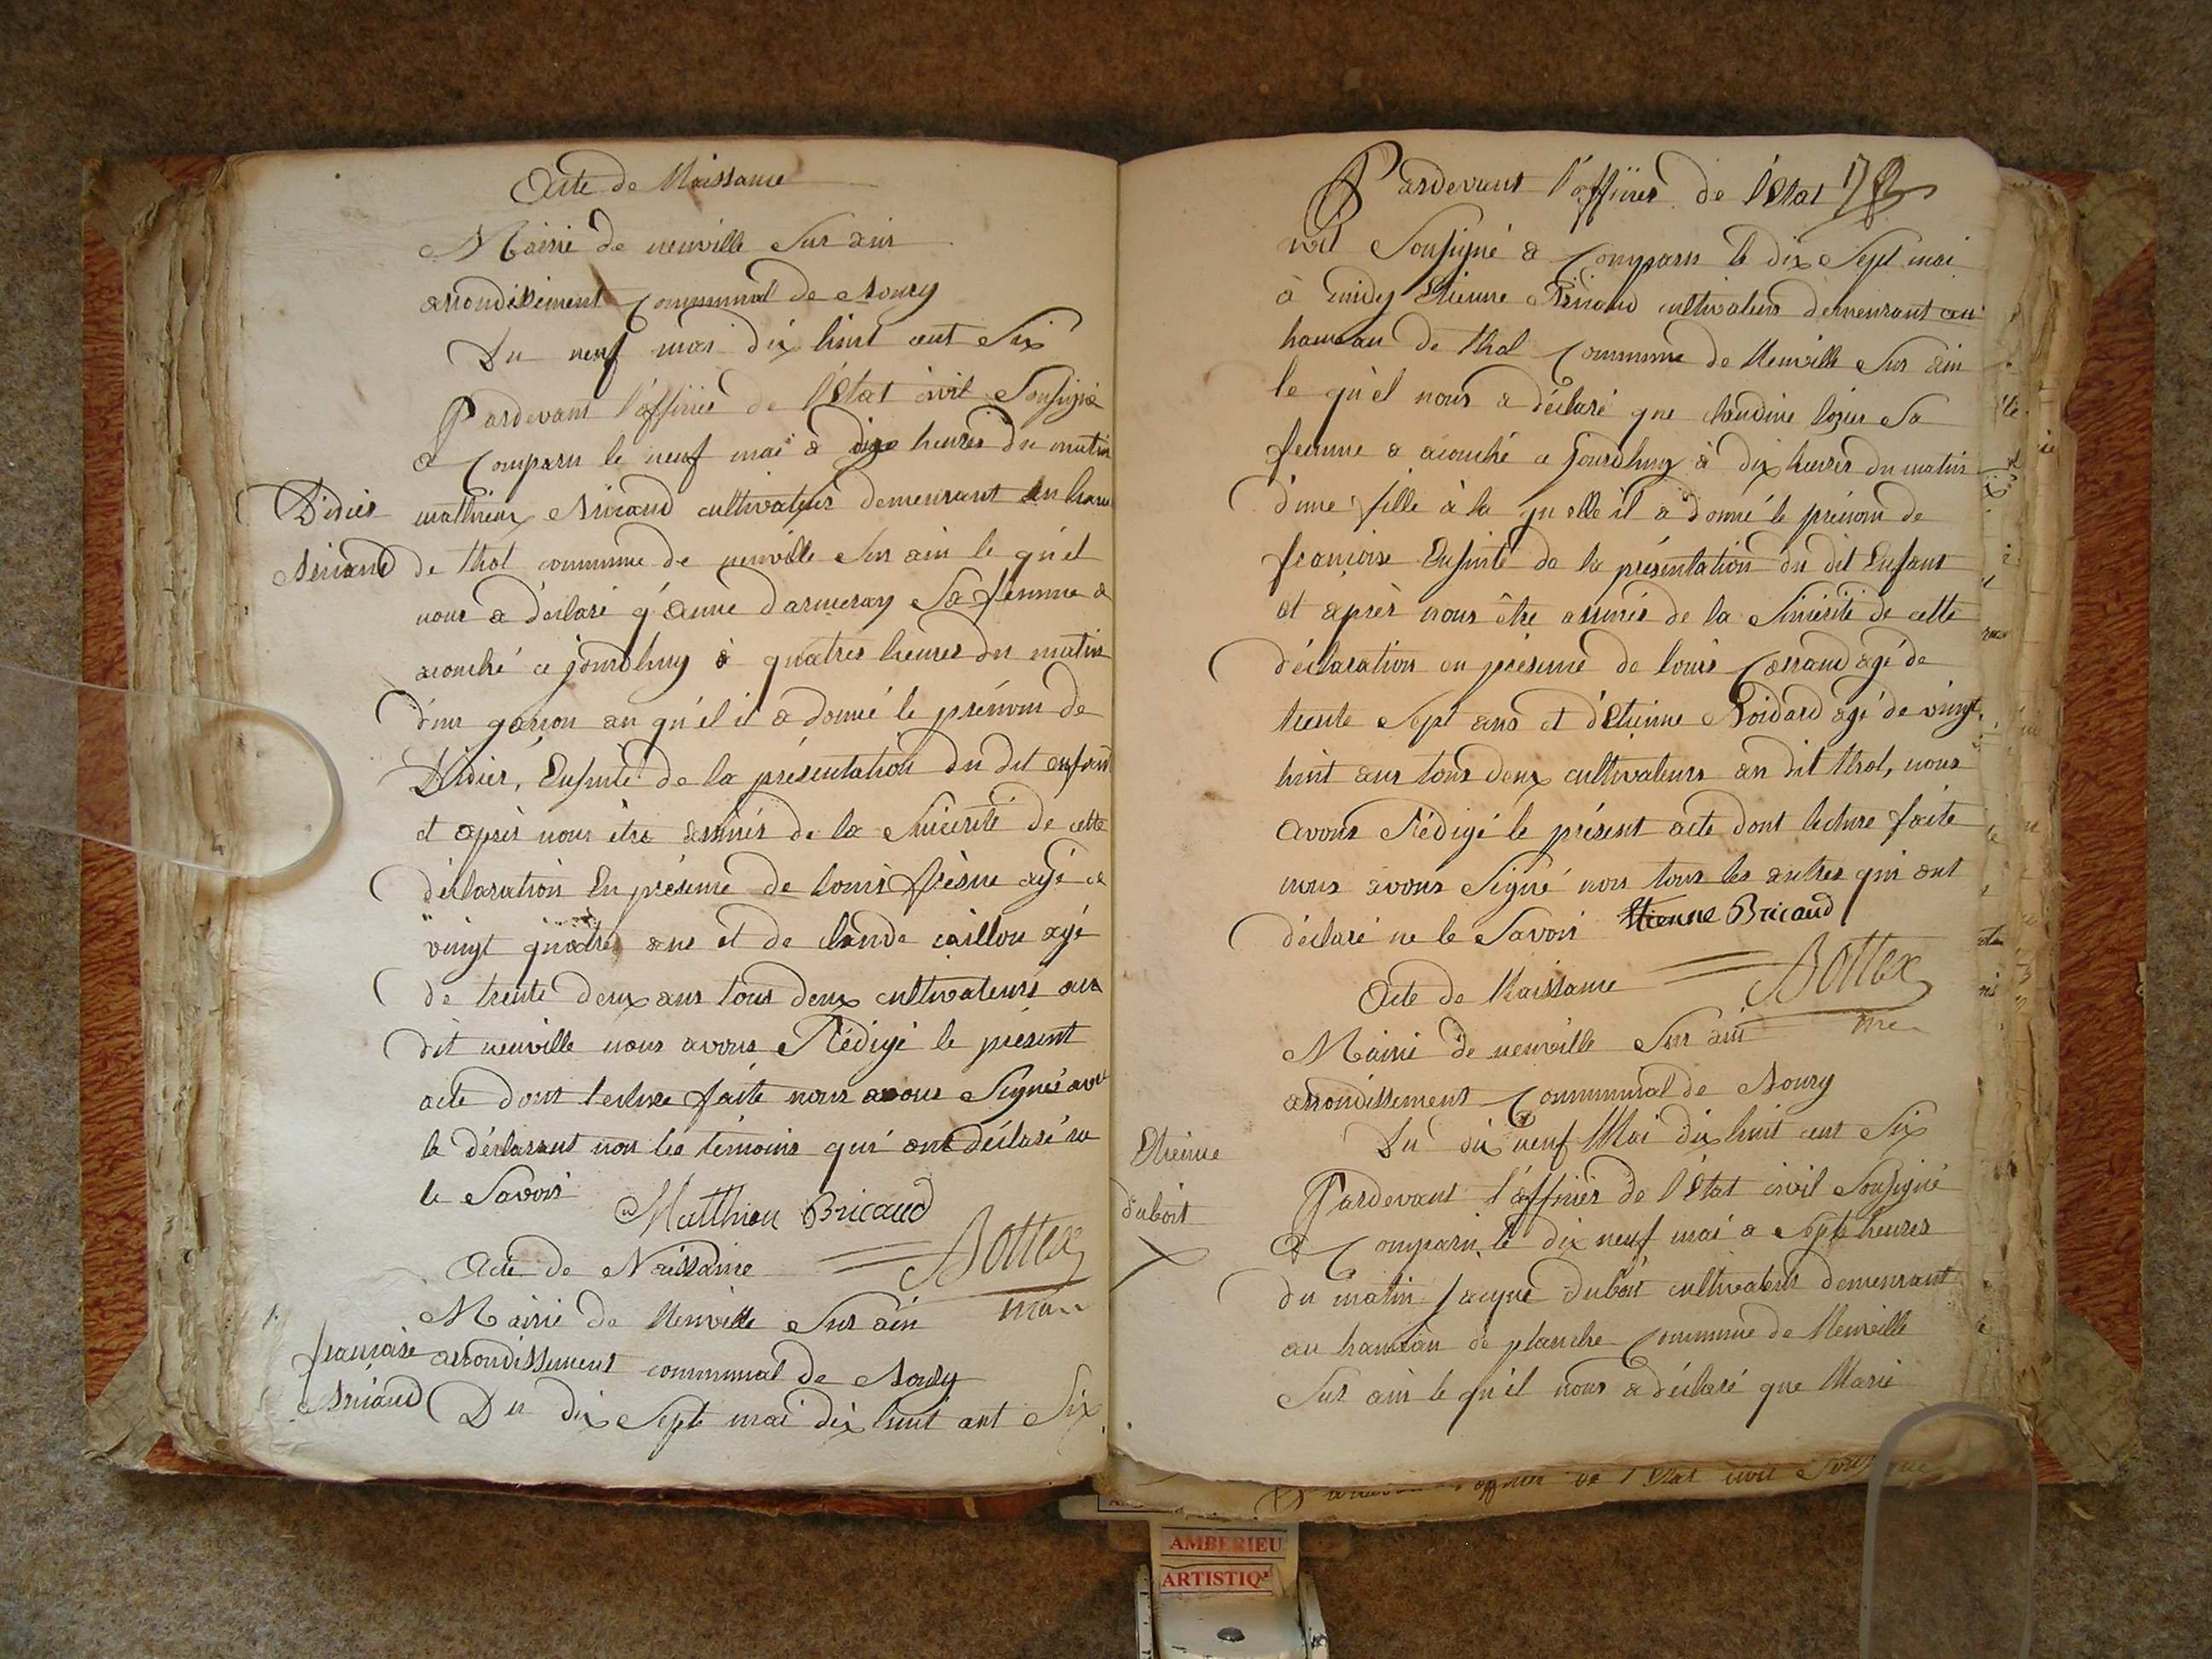 Acte de Naissance
Mairie de neuville Sur ain
arrondissement Communal de Bourg
Du neuf mai dix huit cent Six
Pardevant l'officier de l'Etat civil Soussigné
a Comparu le neuf mai à dixe heures du matin
Didier
Bricaud
matthieux Bricaud cultivateur demeurant au ham
de thol commune de neuville Sur ain le qu'el
nous a déclaré q'anne darmeray Sa femme a
acouché ce jourdhuy à quatres heures du matin
d'un garson au qu'el il a donné le prénom de
Didier, Ensuite de la présentation du dit enfant
et après nous être assurés de la Sincerité de cette
déclaration En présence de louis frèsne agé de
vingt quatre ans et de claude caillou agé
de trente deux ans tous deux cultivateurs au
dit neuville nous avons Rédigé le présent
acte dont lecture faite nous avons Signés avec
le déclarant non les témoins qui ont déclaré ne
le Savoir
Matthieu Bricaud
Bottex
maire
Acte de Naissance
Mairie de Neuville Sur ain
françoise
Bricaud
arrondissement communal de Bourg
Du dix Sept mai dix huit cent Six
Pardevant l'officier de l'Etat 178
civil Soussigné a Comparu le dix Sept mai
à midy Etienne Bricaud cultivateur demeurant au
hameau de thol Commune de Neuville Sur ain
le qu'el nous a déclaré que claudine lozier Sa
femme a acouché ce jourdhuy à dix heures du matin
d'une fille à la qu'elle il a donné le prénom de
françoise Ensuite de la présentation du dit Enfant
et après nous être assurés de la Sincérité de cette
déclaration en présence de louis Carraud agé de
trente Sept ans et d'Etienne Boidard agé de vingt
huit ans tous deux cultivateurs au dit thol, nous
avons Rédigé le présent acte dont lecture faite
nous avons Signé non tous les autres qui ont
déclaré ne le Savoir Etienne Bricaud
Bottex
mre
Acte de Naissance
Mairie de neuville Sur ain
arrondissement Communal de Bourg
Du dix neuf Mai dix huit cent Six
Etienne
duboit
Pardevant l'officier de l'Etat civil Soussigné
a Comparu le dix neuf mai a Sept heures
du matin Jacque duboit cultivateur demeurant
au hameau de planche Commune de Neuville
Sur ain le qu'el nous a déclaré que Marie
officier de l'Etat civil
AMBERIEU
ARTISTIQ